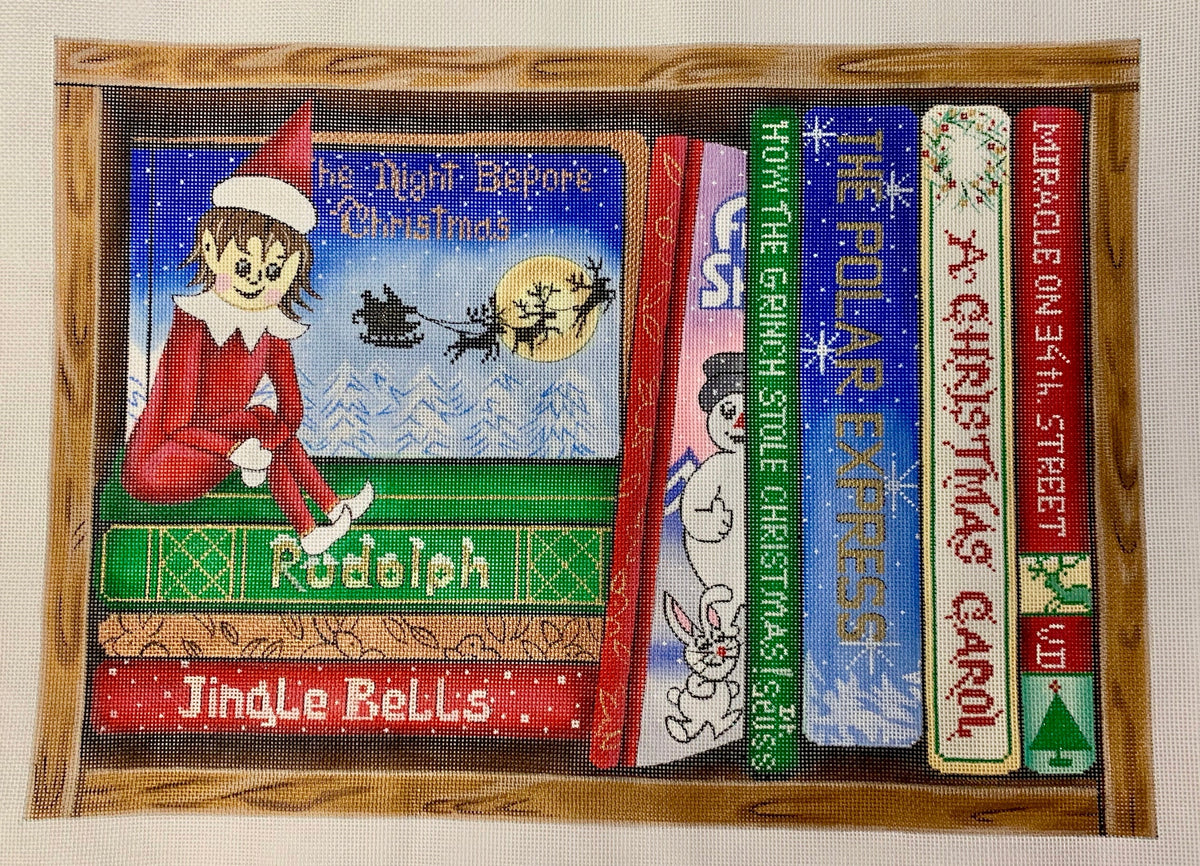 he Night Before
Christmas
Rudolph
Jingle Bells
HOW THE GRINCH STOLE CHRISTMAS! Dr. Seuss
THE POLAR EXPRESS
A CHRISTMAS CAROL
MIRACLE ON 34th. STREET
VD